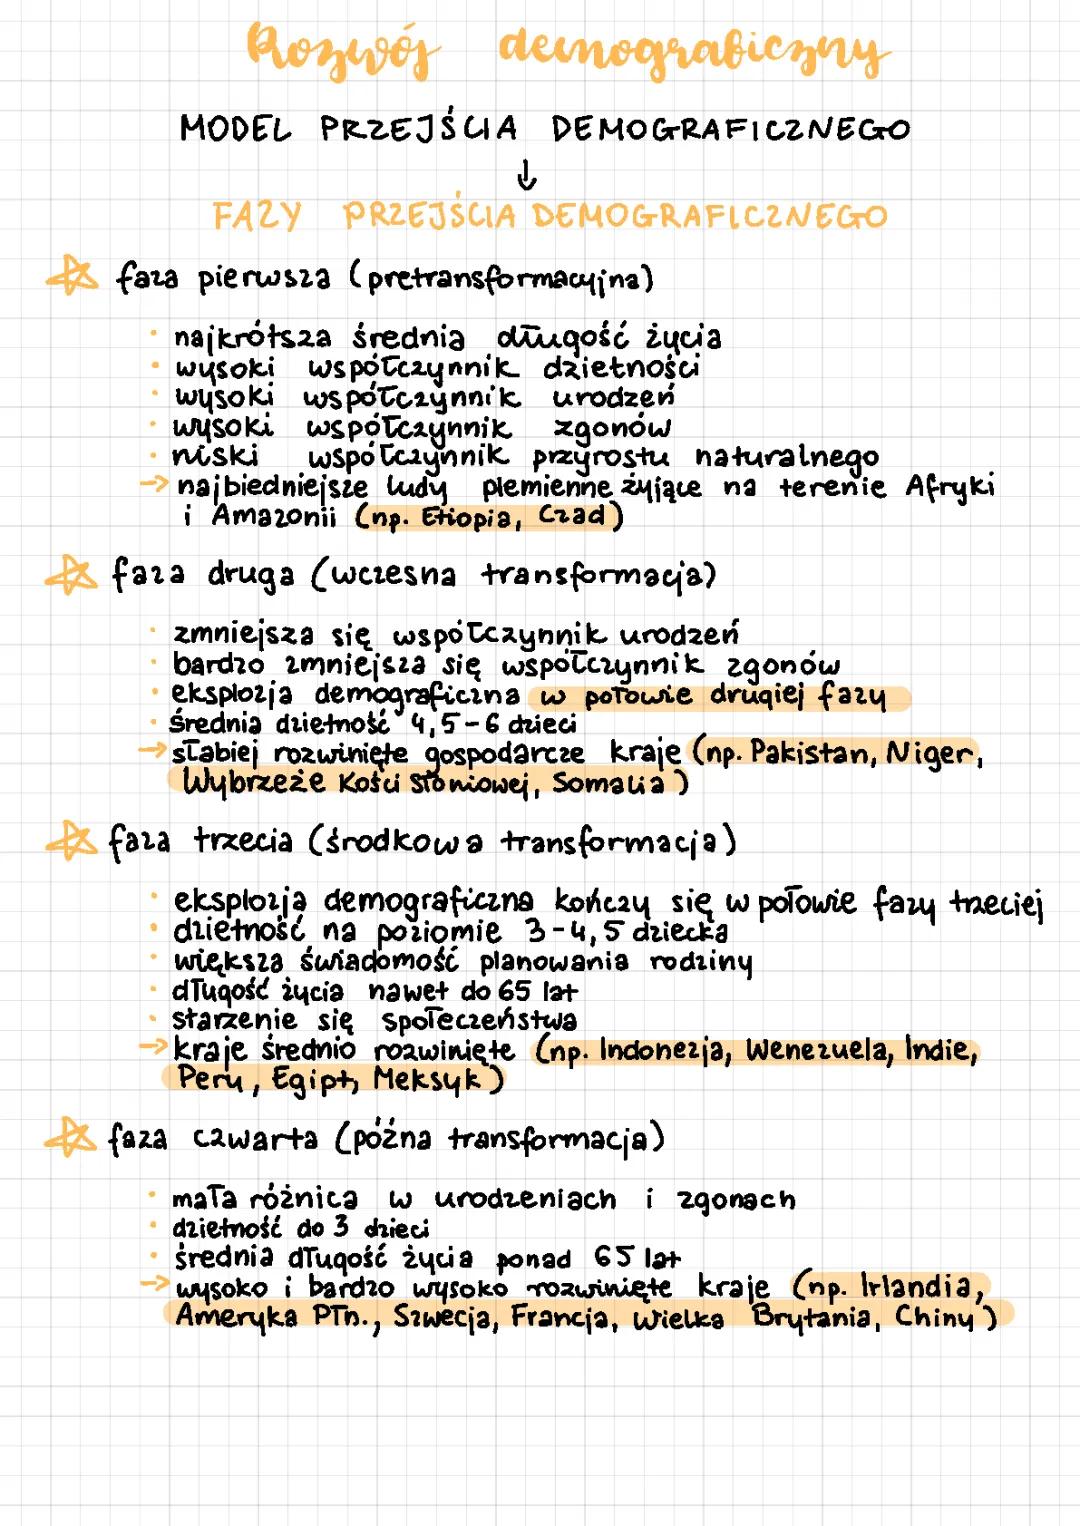 Rozwój demograficzny
MODEL PRZEJŚCIA DEMOGRAFICZNEGO
↓
FAZY PRZEJŚCIA DEMOGRAFICZNEGO
faza pierwsza (pretransformacyjna)
· najkrótsza średnia długość życia
· wysoki współczynnik dzietności
· wysoki współczynnik urodzeń
· wysoki współczynnik zgonów
· niski współczynnik przyrostu naturalnego
→ najbiedniejsze ludy plemienne żyjące na terenie Afryki
i Amazonii (np. Etiopia, Czad)
faza druga (wczesna transformacja)
· zmniejsza się współczynnik urodzeń
· bardzo zmniejsza się współczynnik zgonów
· eksplozja demograficzna w połowie drugiej fazy
· średnia dzietność 4,5-6 dzieci
→ słabiej rozwinięte gospodarcze kraje (np. Pakistan, Niger,
Wybrzeże Kości Słoniowej, Somalia)
faza trzecia (środkowa transformacja)
· eksplozja demograficzna kończy się w połowie fazy trzeciej
· dzietność na poziomie 3-4,5 dziecka
· większa świadomość planowania rodziny
· długość życia nawet do 65 lat
· starzenie się społeczeństwa
→ kraje średnio rozwinięte (np. Indonezja, Wenezuela, Indie,
Peru, Egipt, Meksyk)
faza czwarta (późna transformacja)
· mała różnica w urodzeniach i zgonach
· dzietność do 3 dzieci
· średnia długość życia ponad 65 lat
→ wysoko i bardzo wysoko rozwinięte kraje (np. Irlandia,
Ameryka Płn., Szwecja, Francja, Wielka Brytania, Chiny)